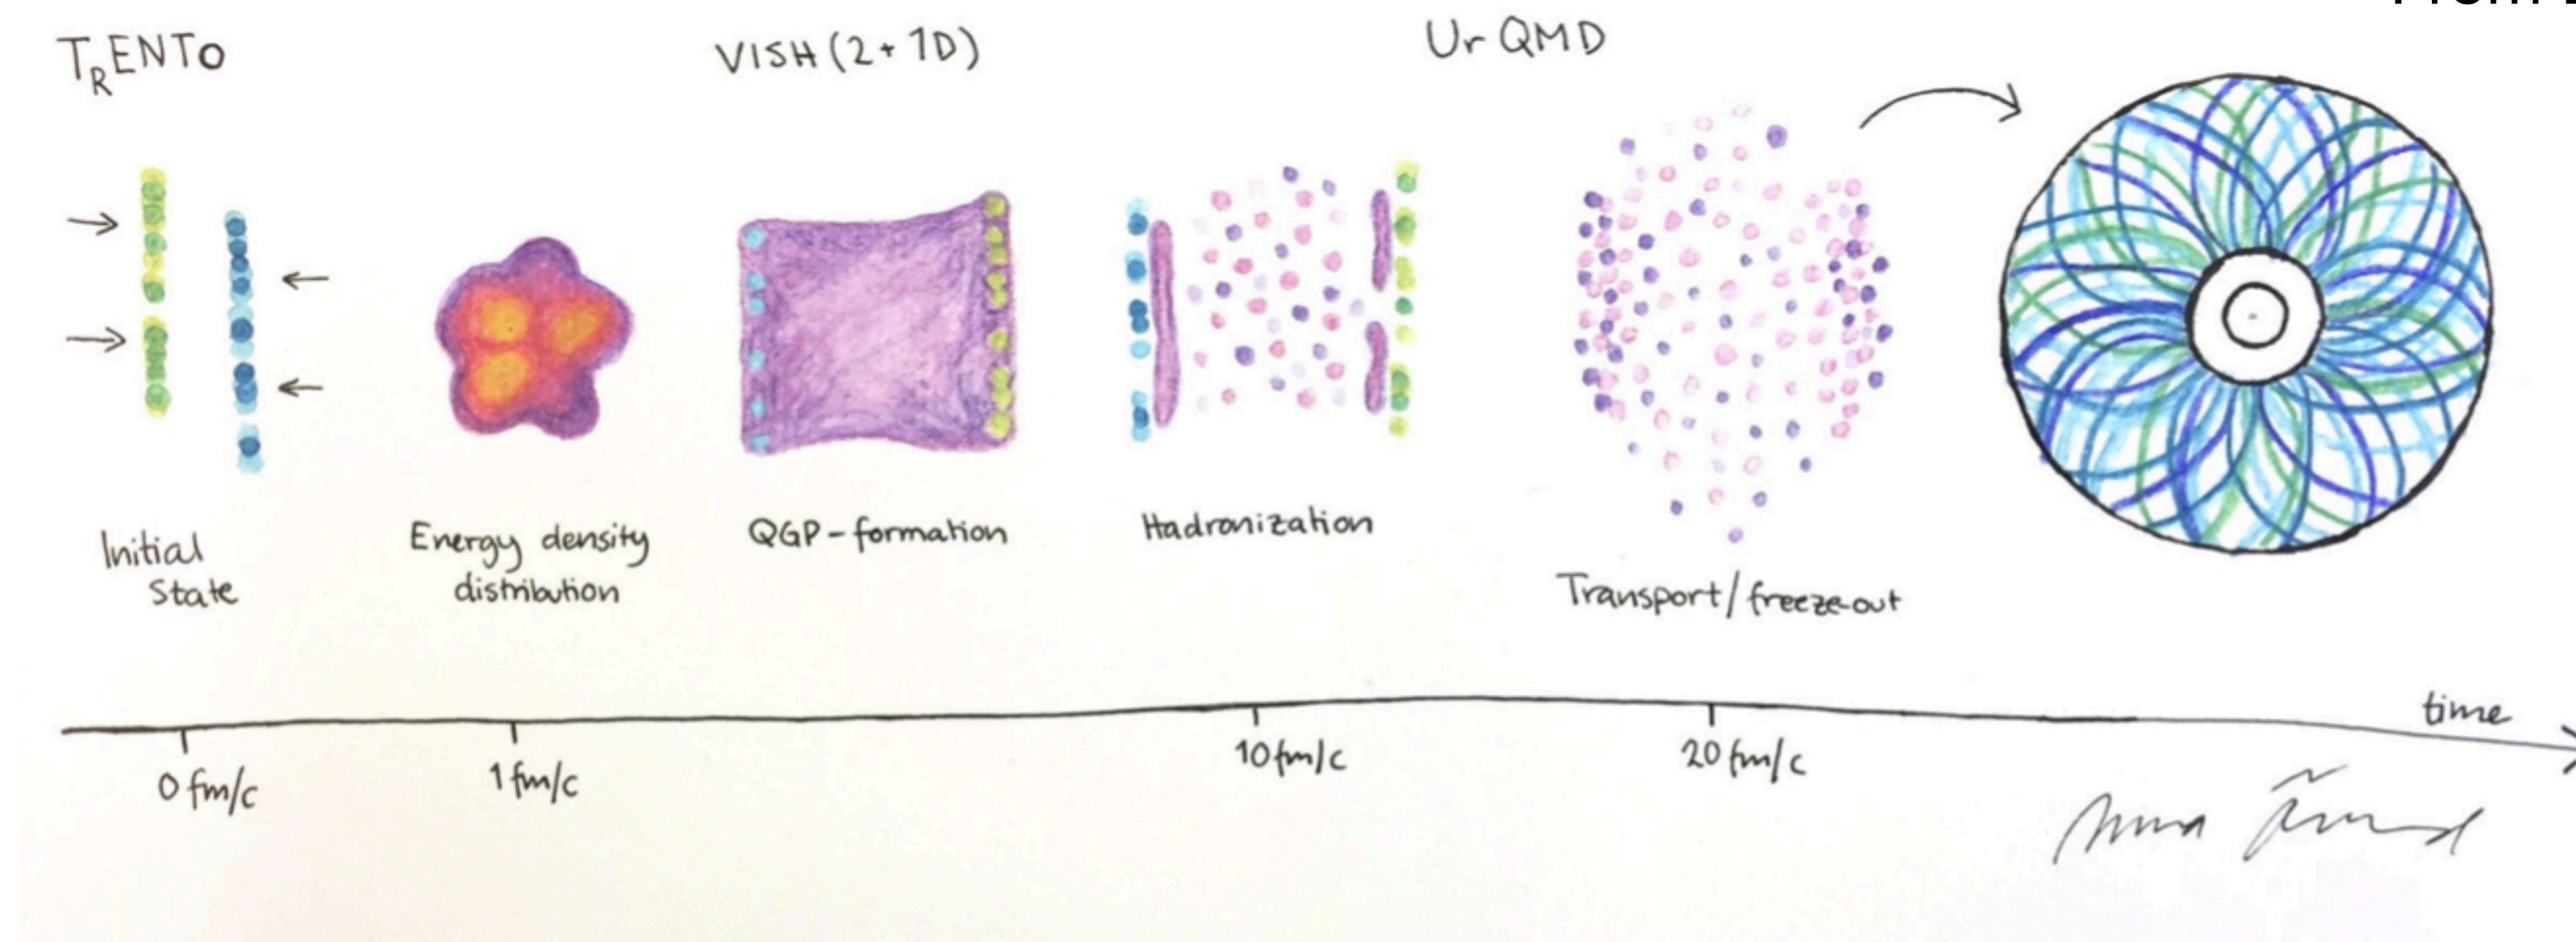 TRENTo
VISH (2+1D)
UrQMD
Initial
State
Energy density
distribution
QGP-formation
Hadronization
Transport/freeze-out
time
0 fm/c
1 fm/c
10 fm/c
20 fm/c